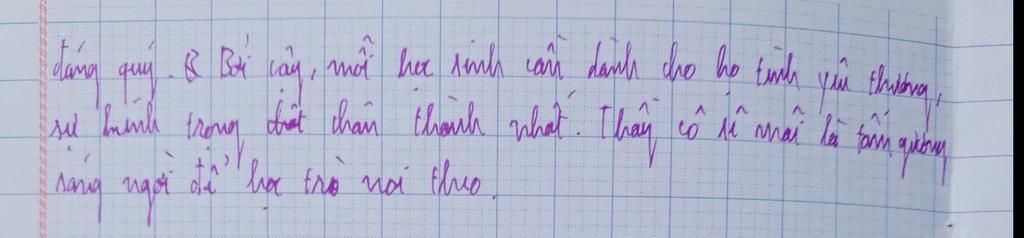 đáng quý. Bởi vậy, mỗi học sinh cần dành cho họ tình yêu thương,
sự kính trọng chân thành nhất. Thầy cô sẽ mãi là tấm gương
sáng ngời để học trò noi theo.